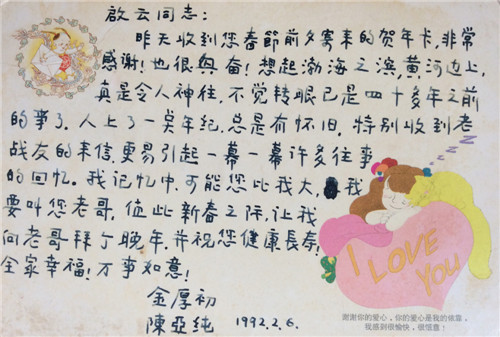 啟云同志：
昨天收到您春節前夕寄来的贺年卡，非常
感谢！也很兴奋！想起渤海之滨，黄河边上，
真是令人神往，不觉转眼已是四十多年之前
的事了。人上了一定年纪，总是有怀旧，特别收到老
战友的来信，更易引起一幕一幕许多往事
的回忆。我记忆中，可能您比我大，我
要叫您老哥，值此新春之际，让我
向老哥拜个晚年，并祝您健康長寿！
全家幸福！万事如意！
金厚初
陳亞纯 1992.2.6.
I LOVE YOU
谢谢你的爱心，你的爱心是我的依靠，
我感到很愉快，很恬意！